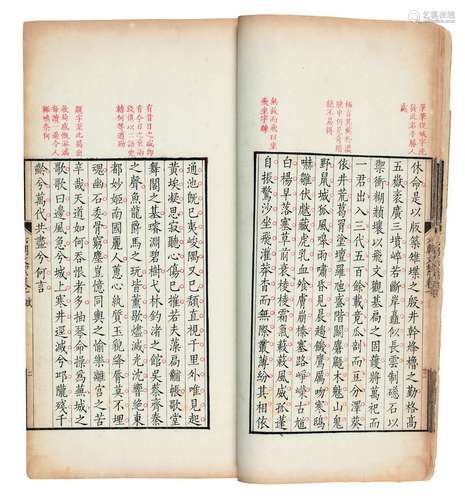 筆筆從城字洗
休命是以版築雉堞之殷井幹烽櫓之勤格高
五嶽袤廣三墳崪若斷岸矗似長雲制磁石以
禦衝糊赬壤以飛文觀基扃之固護將萬祀而
一君出入三代五百餘載竟瓜剖而豆分澤葵
依井荒葛罥塗壇羅虺蜮階鬬麏鼯木魅山鬼
野鼠城狐風嘷雨嘯昏見晨趨饑鷹厲吻寒鴟
嚇雛伏虣藏虎乳血飧膚崩榛塞路崢嶸古馗
白楊早落塞草前衰稜稜霜氣蔌蔌風威孤蓬
自振驚沙坐飛灌莽杳而無際叢薄紛其相依
飛坐字鍊
有昔日之盛即
有今日之衰兩
段俱以二語
轉何等遒勁
收局感慨淋漓
每讀一過令人
輒喚奈何
通池既已夷峻隅又已頹直視千里外唯見起
黃埃凝思寂聽心傷已摧若夫藻扃黼帳歌堂
舞閣之基璿淵碧樹弋林釣渚之館吳蔡齊秦
之聲魚龍爵馬之玩皆薰歇燼滅光沈響絕東
都妙姬南國麗人蕙心紈質玉貌絳脣莫不埋
魂幽石委骨窮塵豈憶同輿之愉樂離宮之苦
辛哉天道如何吞恨者多抽琴命操為蕪城之
歌歌曰邊風急兮城上寒井逕滅兮邱隴殘千
齡兮萬代共盡兮何言